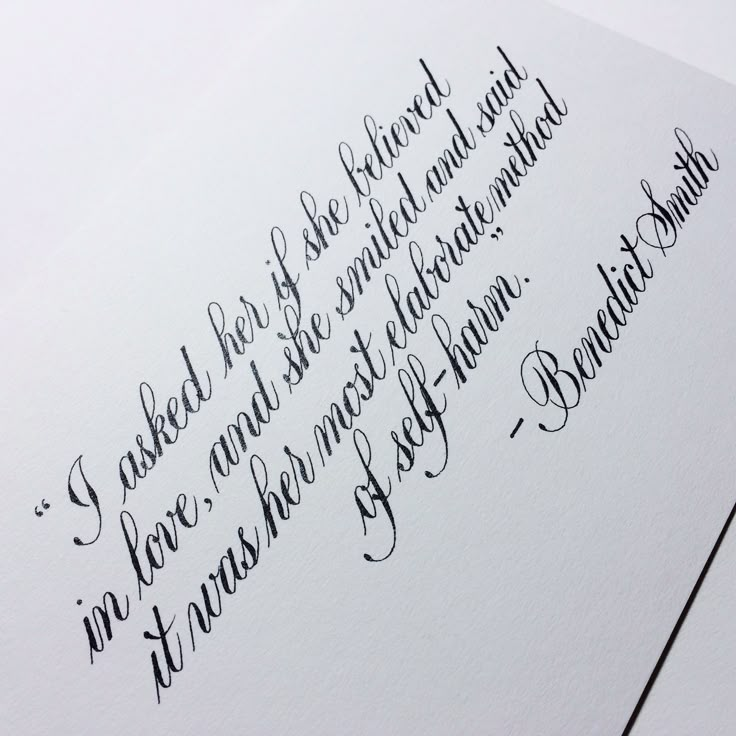 “I asked her if she believed
in love, and she smiled and said
it was her most elaborate method
of self-harm.”
- Benedict Smith